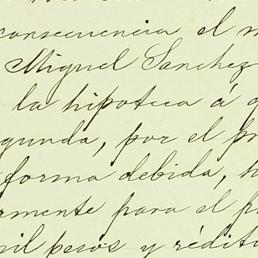 consecuencia el
Miguel Sanchez
la hipoteca á
gunda, por el
forma debida,
rmente para el
mil pesos y rédito